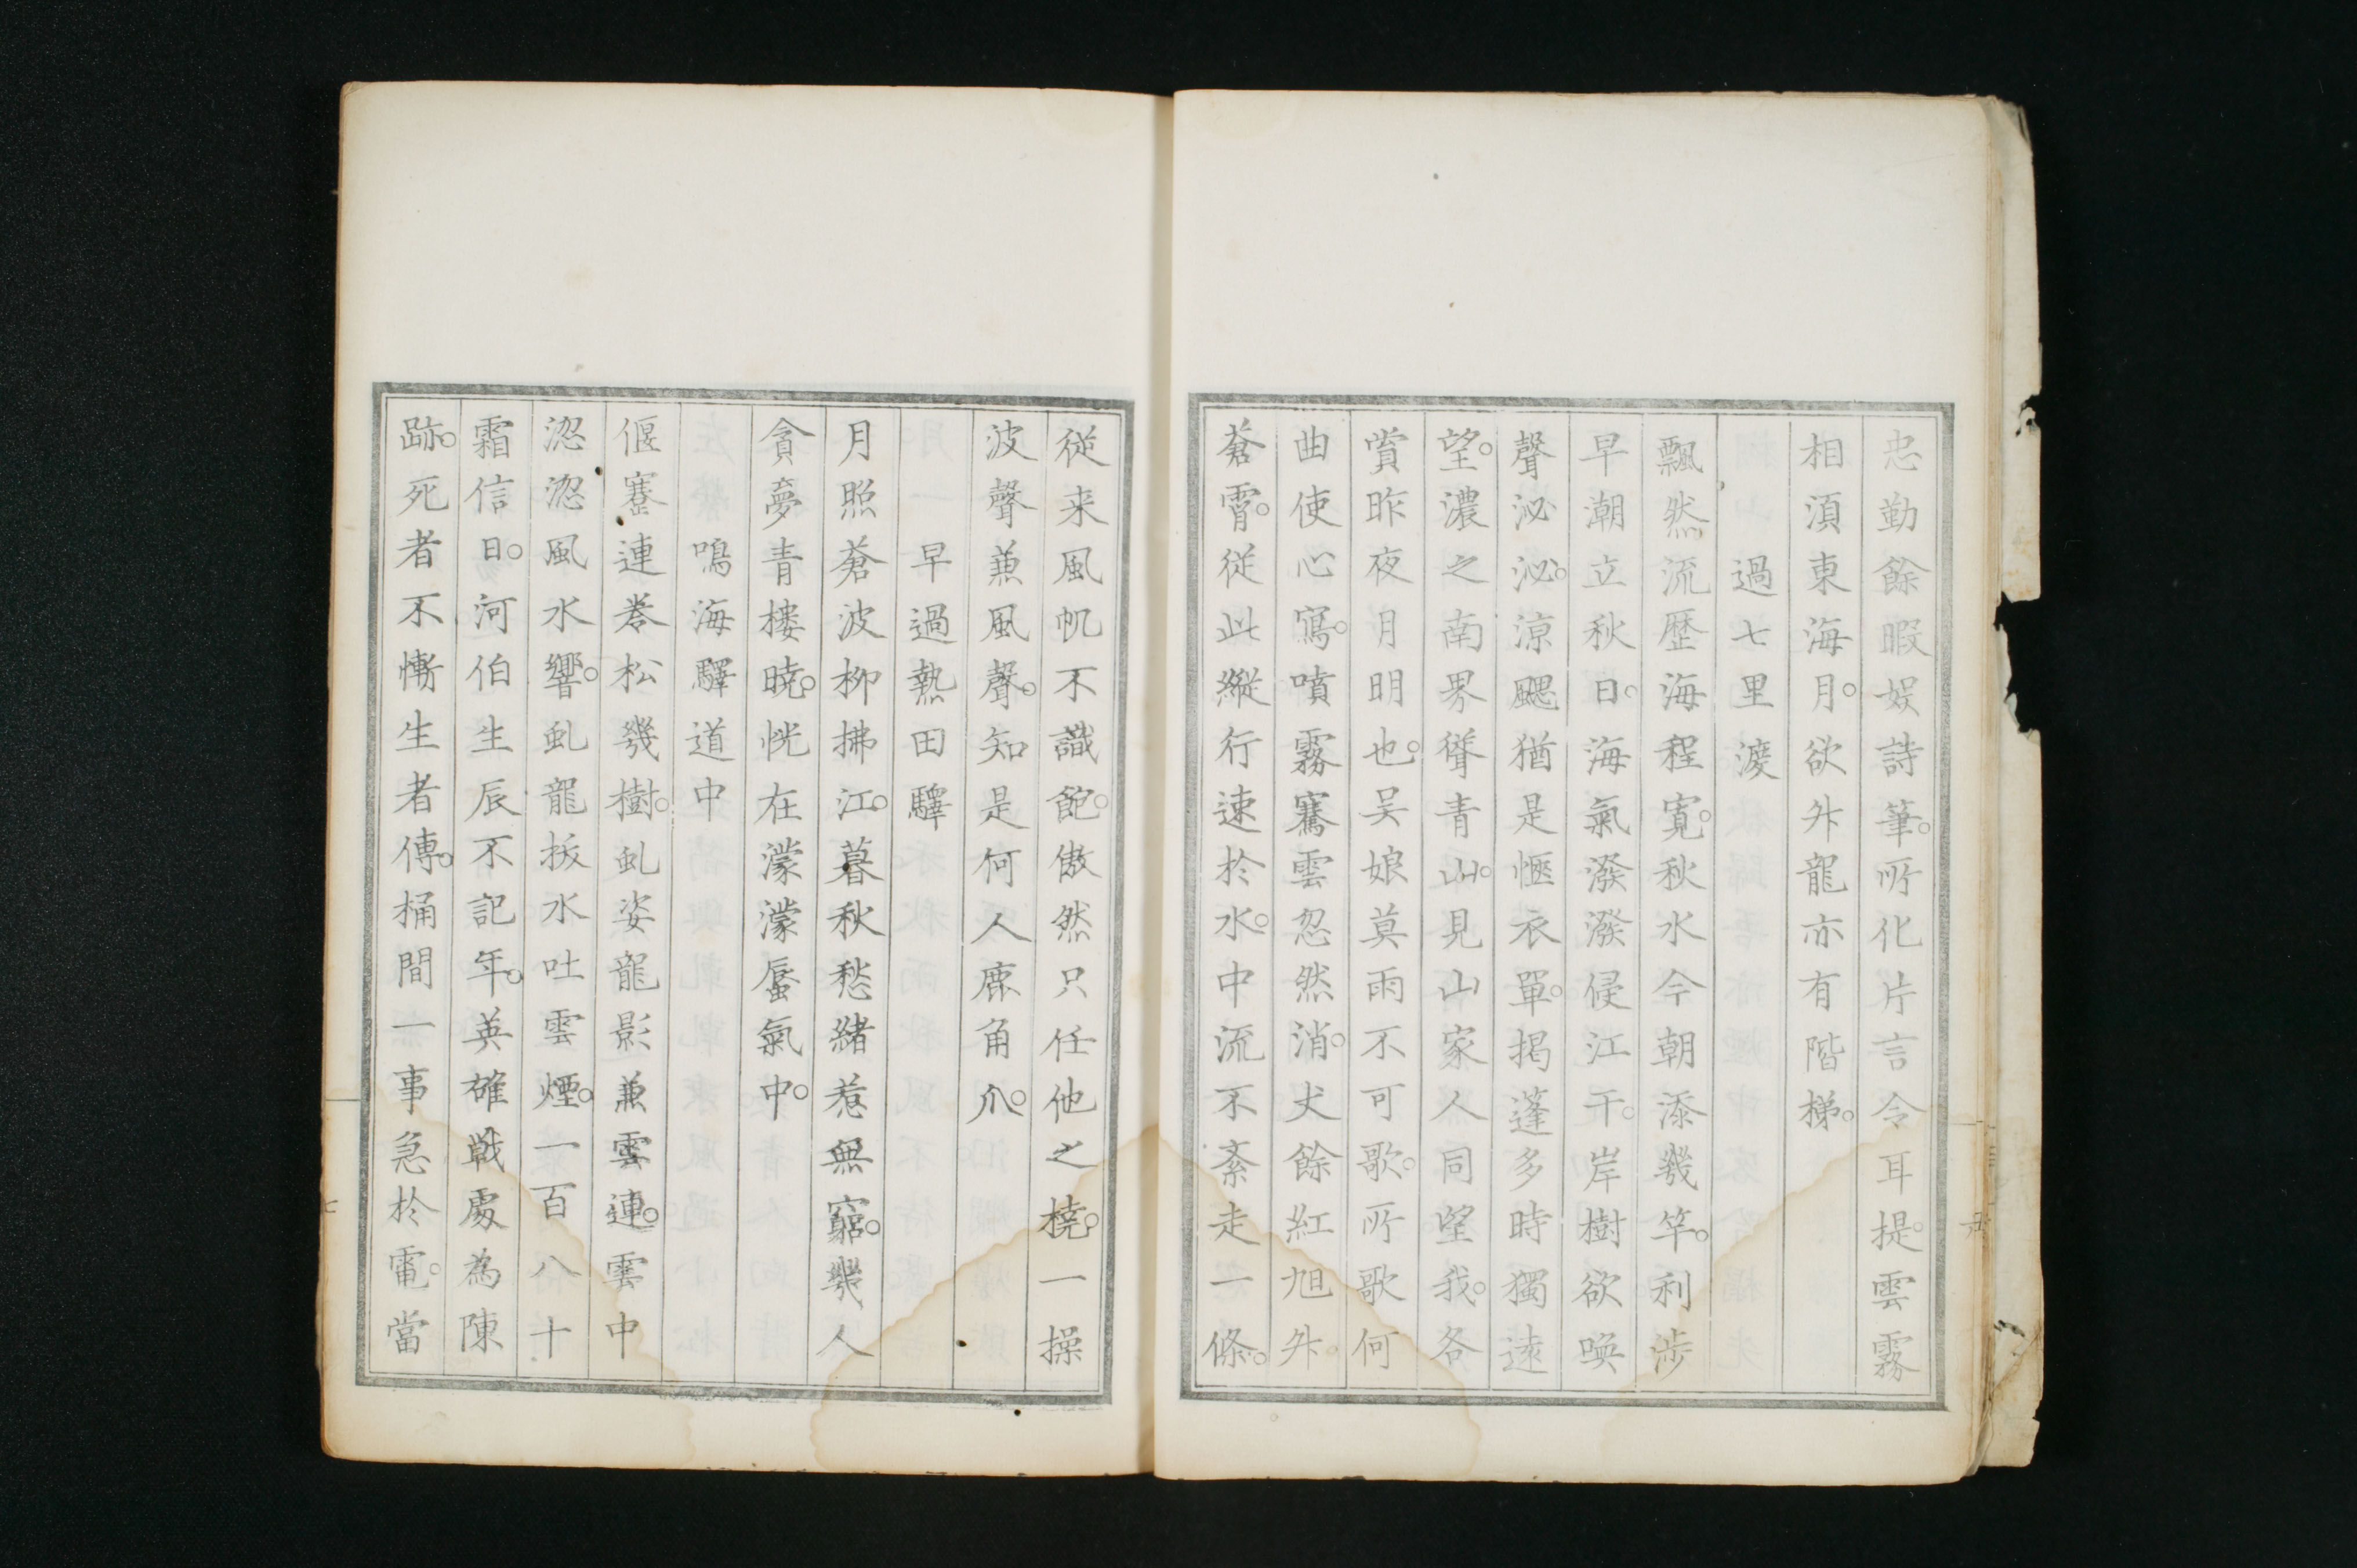 忠勤餘暇娯詩筆。所化片言令耳提。雲霧
相湏東海月。欲升龍亦有階梯。
過七里渡
飄然流歴海程寛。秋水今朝添幾竿。利渉
早潮立秋日。海氣潑潑侵江干。岸樹欲喚
聲沁沁。涼颸猶是愜衣單。掲蓬多時獨遠
望。濃之南界聳青山。見山家人同望我。各
賞昨夜月明也。吴娘莫雨不可歌。所歌何
曲使心寫。噴霧騫雲忽然消。丈餘紅旭升。
蒼霄。従此縦行速於水。中流不紊走一條。
従来風帆不識飽。傲然只任他之橈。一操
波聲兼風聲。知是何人鹿角爪。
早過熱田驛
月照蒼波柳拂江。暮秋愁緒惹無窮。幾人
貪夢青樓暁。恍在濛濛蜃氣中。
鳴海驛道中
偃蹇連巻松幾樹。虬姿龍影兼雲連。雲中
淴淴風水響。虬龍扳水吐雲煙。一百八十
霜信日。河伯生辰不記年。英雄戦處為陳
跡。死者不慚生者傳。桶間一事急於電。當
七